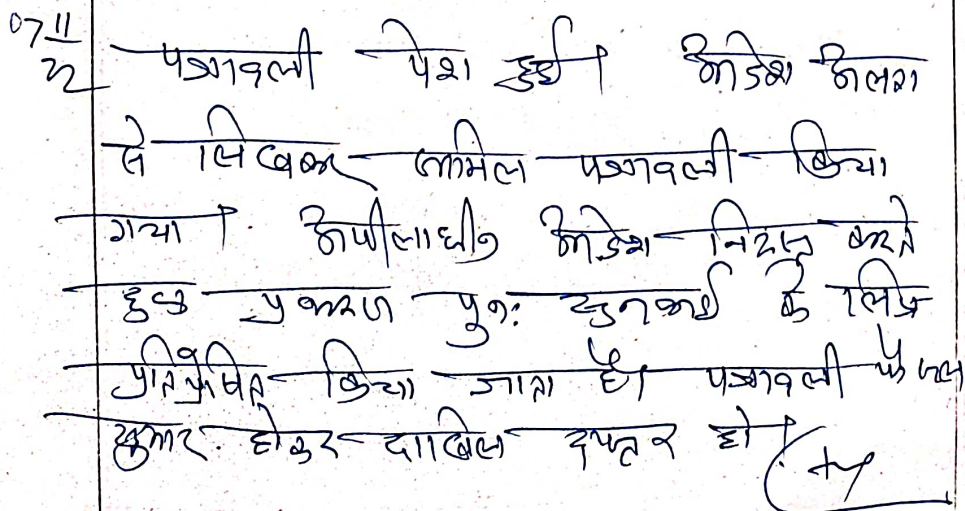 07/11/22
पत्रावली पेश हुई। आदेश अलग
से लिखकर शामिल पत्रावली किया
गया। अपीलाधीन आदेश निरस्त करते
हुए प्रकरण पुनः सुनवाई के लिए
प्रतिप्रेषित किया जाता है। पत्रावली फैसल
शुमार होकर दाखिल दफ्तर हो।